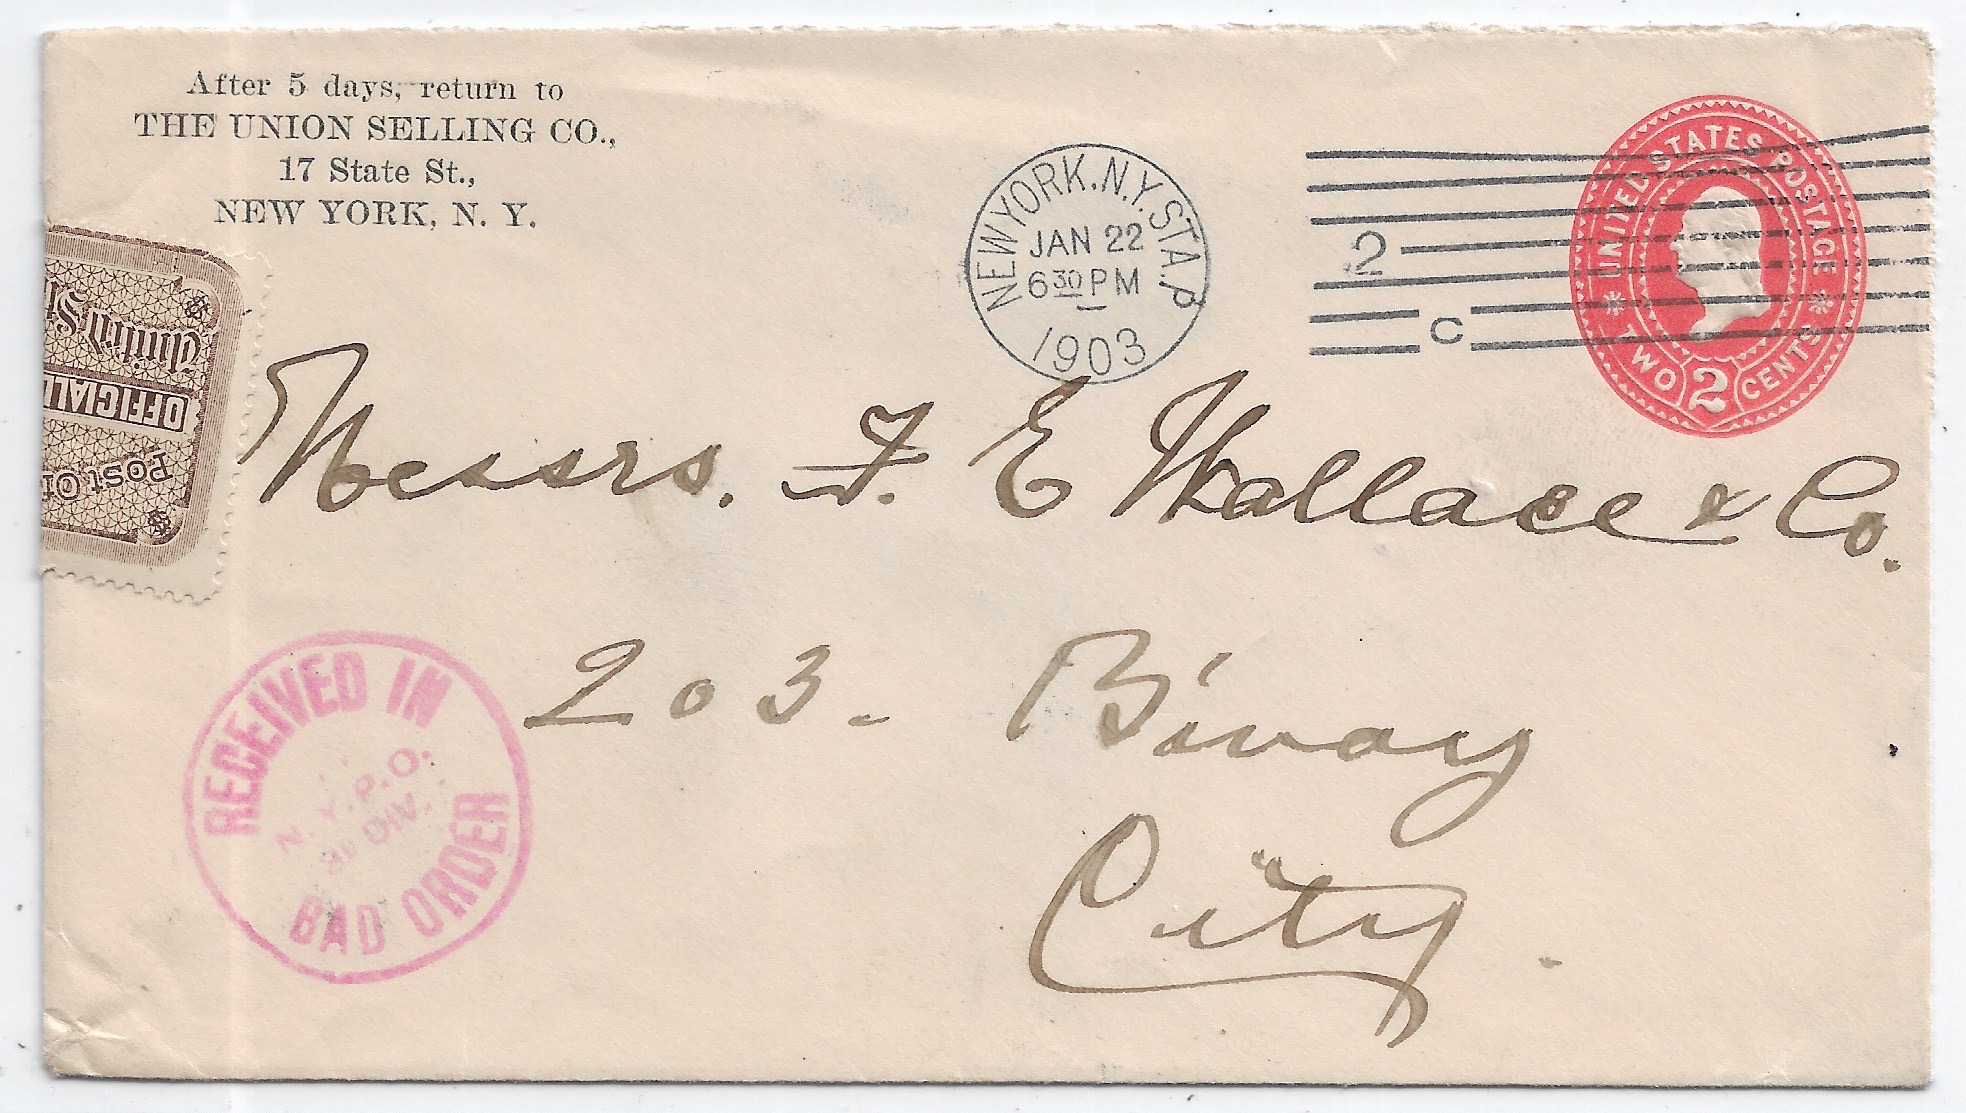 After 5 days, return to
THE UNION SELLING CO.,
17 State St.,
NEW YORK, N. Y.
NEW YORK, N.Y. STA. P
JAN 22
6 30 PM
1903
2
C
UNITED STATES POSTAGE
TWO 2 CENTS
United St
OFFICIALL
POST OF
Messrs. F. E Wallace & Co.
203- B'way
City.
RECEIVED IN
N. Y. P. O.
DIV.
BAD ORDER